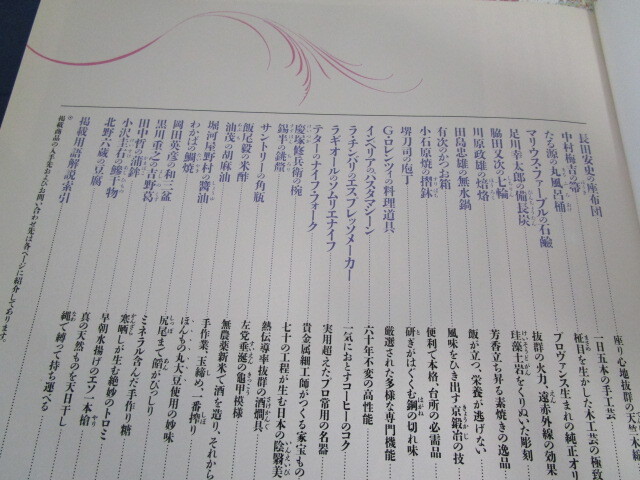 長田安史の座布団 座り心地抜群の天竺木綿
中村梅吉の箒 一日五本の手工芸
たる源の丸風呂桶 柾目を生かした木工芸の極致
マリウス・ファーブルの石鹼 プロヴァンス生まれの純正オリ
足川幸太郎の備長炭 抜群の火力、遠赤外線の効果
脇田又次の七輪 珪藻土岩をくりぬいた彫刻
川原政雄の焙烙 芳香立ち昇る素焼きの逸品
田島忠雄の無水鍋 飯が立つ、栄養が逃げない
有次のかつお箱 風味をひき出す京鍛冶の技
小石原焼の摺鉢 便利で本格、台所の必需品
堺刀司の庖丁 研ぎがはくくむ鋼の切れ味
G・ロレンツィの料理道具 厳選された多様な専門機能
インペリアのパスタマシーン 六十年不変の高性能
ラ・チンバリのエスプレッソメーカー 一気におとすコーヒーのコク
ラギオールのソムリエナイフ 実用超えたプロ常用の名器
テターのナイフ・フォーク 貴金属細工師がつくる家宝もの
慶塚修兵衛の椀 七十の工程が生む日本の陰翳美
錫半の銚釐 熱伝導率抜群の酒燗具
サントリーの角瓶 左党垂涎の亀甲模様
飯尾毅の米酢 無農薬新米で酒を造り、それから
油茂の胡麻油 手作業、玉締め、一番搾り
堀河屋野村の醬油 ほんもの丸大豆使用の妙味
わかばの鯛焼 尻尾まで餡がびっしり
岡田英彦の和三盆 ミネラル含んだ手作り糖
黒川重之の吉野葛 寒晒しが生む絶妙のトロミ
田中哲の蒲鉾 早朝水揚げのエソ一本槍
小沢主石の鰺干物 真の天然ものを天日干し
北野六蔵の豆腐 縄で縛って持ち運べる
掲載用語解説索引
※掲載商品の入手先およびお問い合わせ先は各ページに紹介してあります。